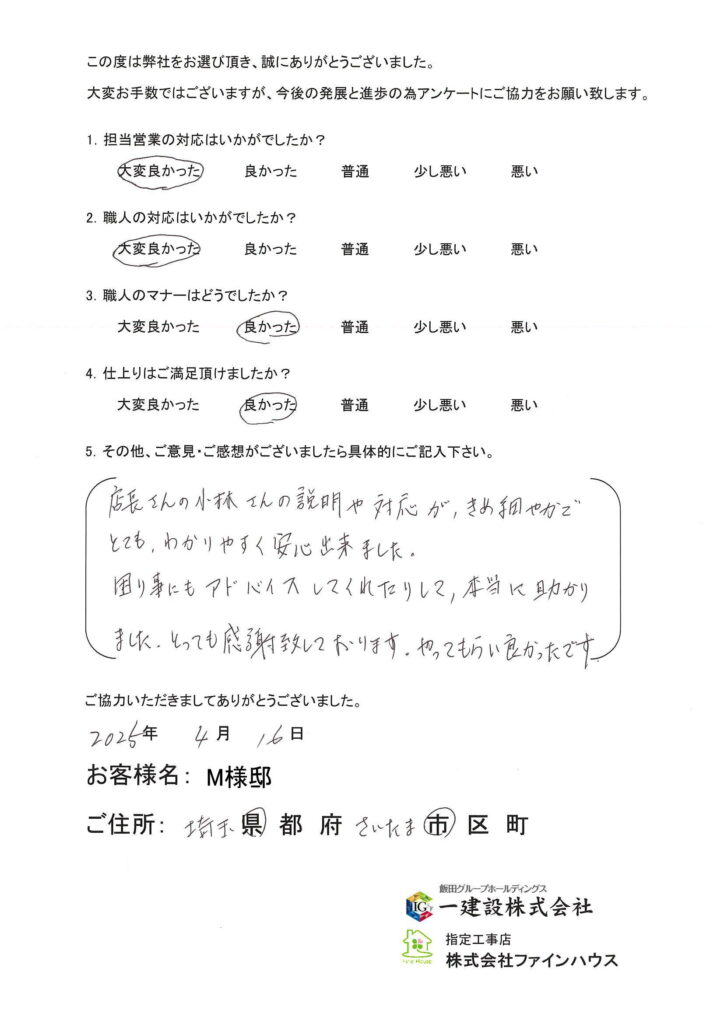 この度は弊社をお選び頂き、誠にありがとうございました。
大変お手数ではございますが、今後の発展と進歩の為アンケートにご協力をお願い致します。
1. 担当営業の対応はいかがでしたか？
大変良かった 良かった 普通 少し悪い 悪い
2. 職人の対応はいかがでしたか？
大変良かった 良かった 普通 少し悪い 悪い
3. 職人のマナーはどうでしたか？
大変良かった 良かった 普通 少し悪い 悪い
4. 仕上りはご満足頂けましたか？
大変良かった 良かった 普通 少し悪い 悪い
5. その他、ご意見・ご感想がございましたら具体的にご記入下さい。
店長さんの小林さんの説明や対応が、きめ細やかで
とても、わかりやすく安心出来ました。
困り事にもアドバイスしてくれたりして、本当に助かり
ました。とっても感謝致しております。やってもらい良かったです
ご協力いただきましてありがとうございました。
2025年 4月 16日
お客様名： M様邸
ご住所： 埼玉 県 都 府 さいたま 市 区 町
飯田グループホールディングス
IG 一建設株式会社
指定工事店
Fine House 株式会社ファインハウス